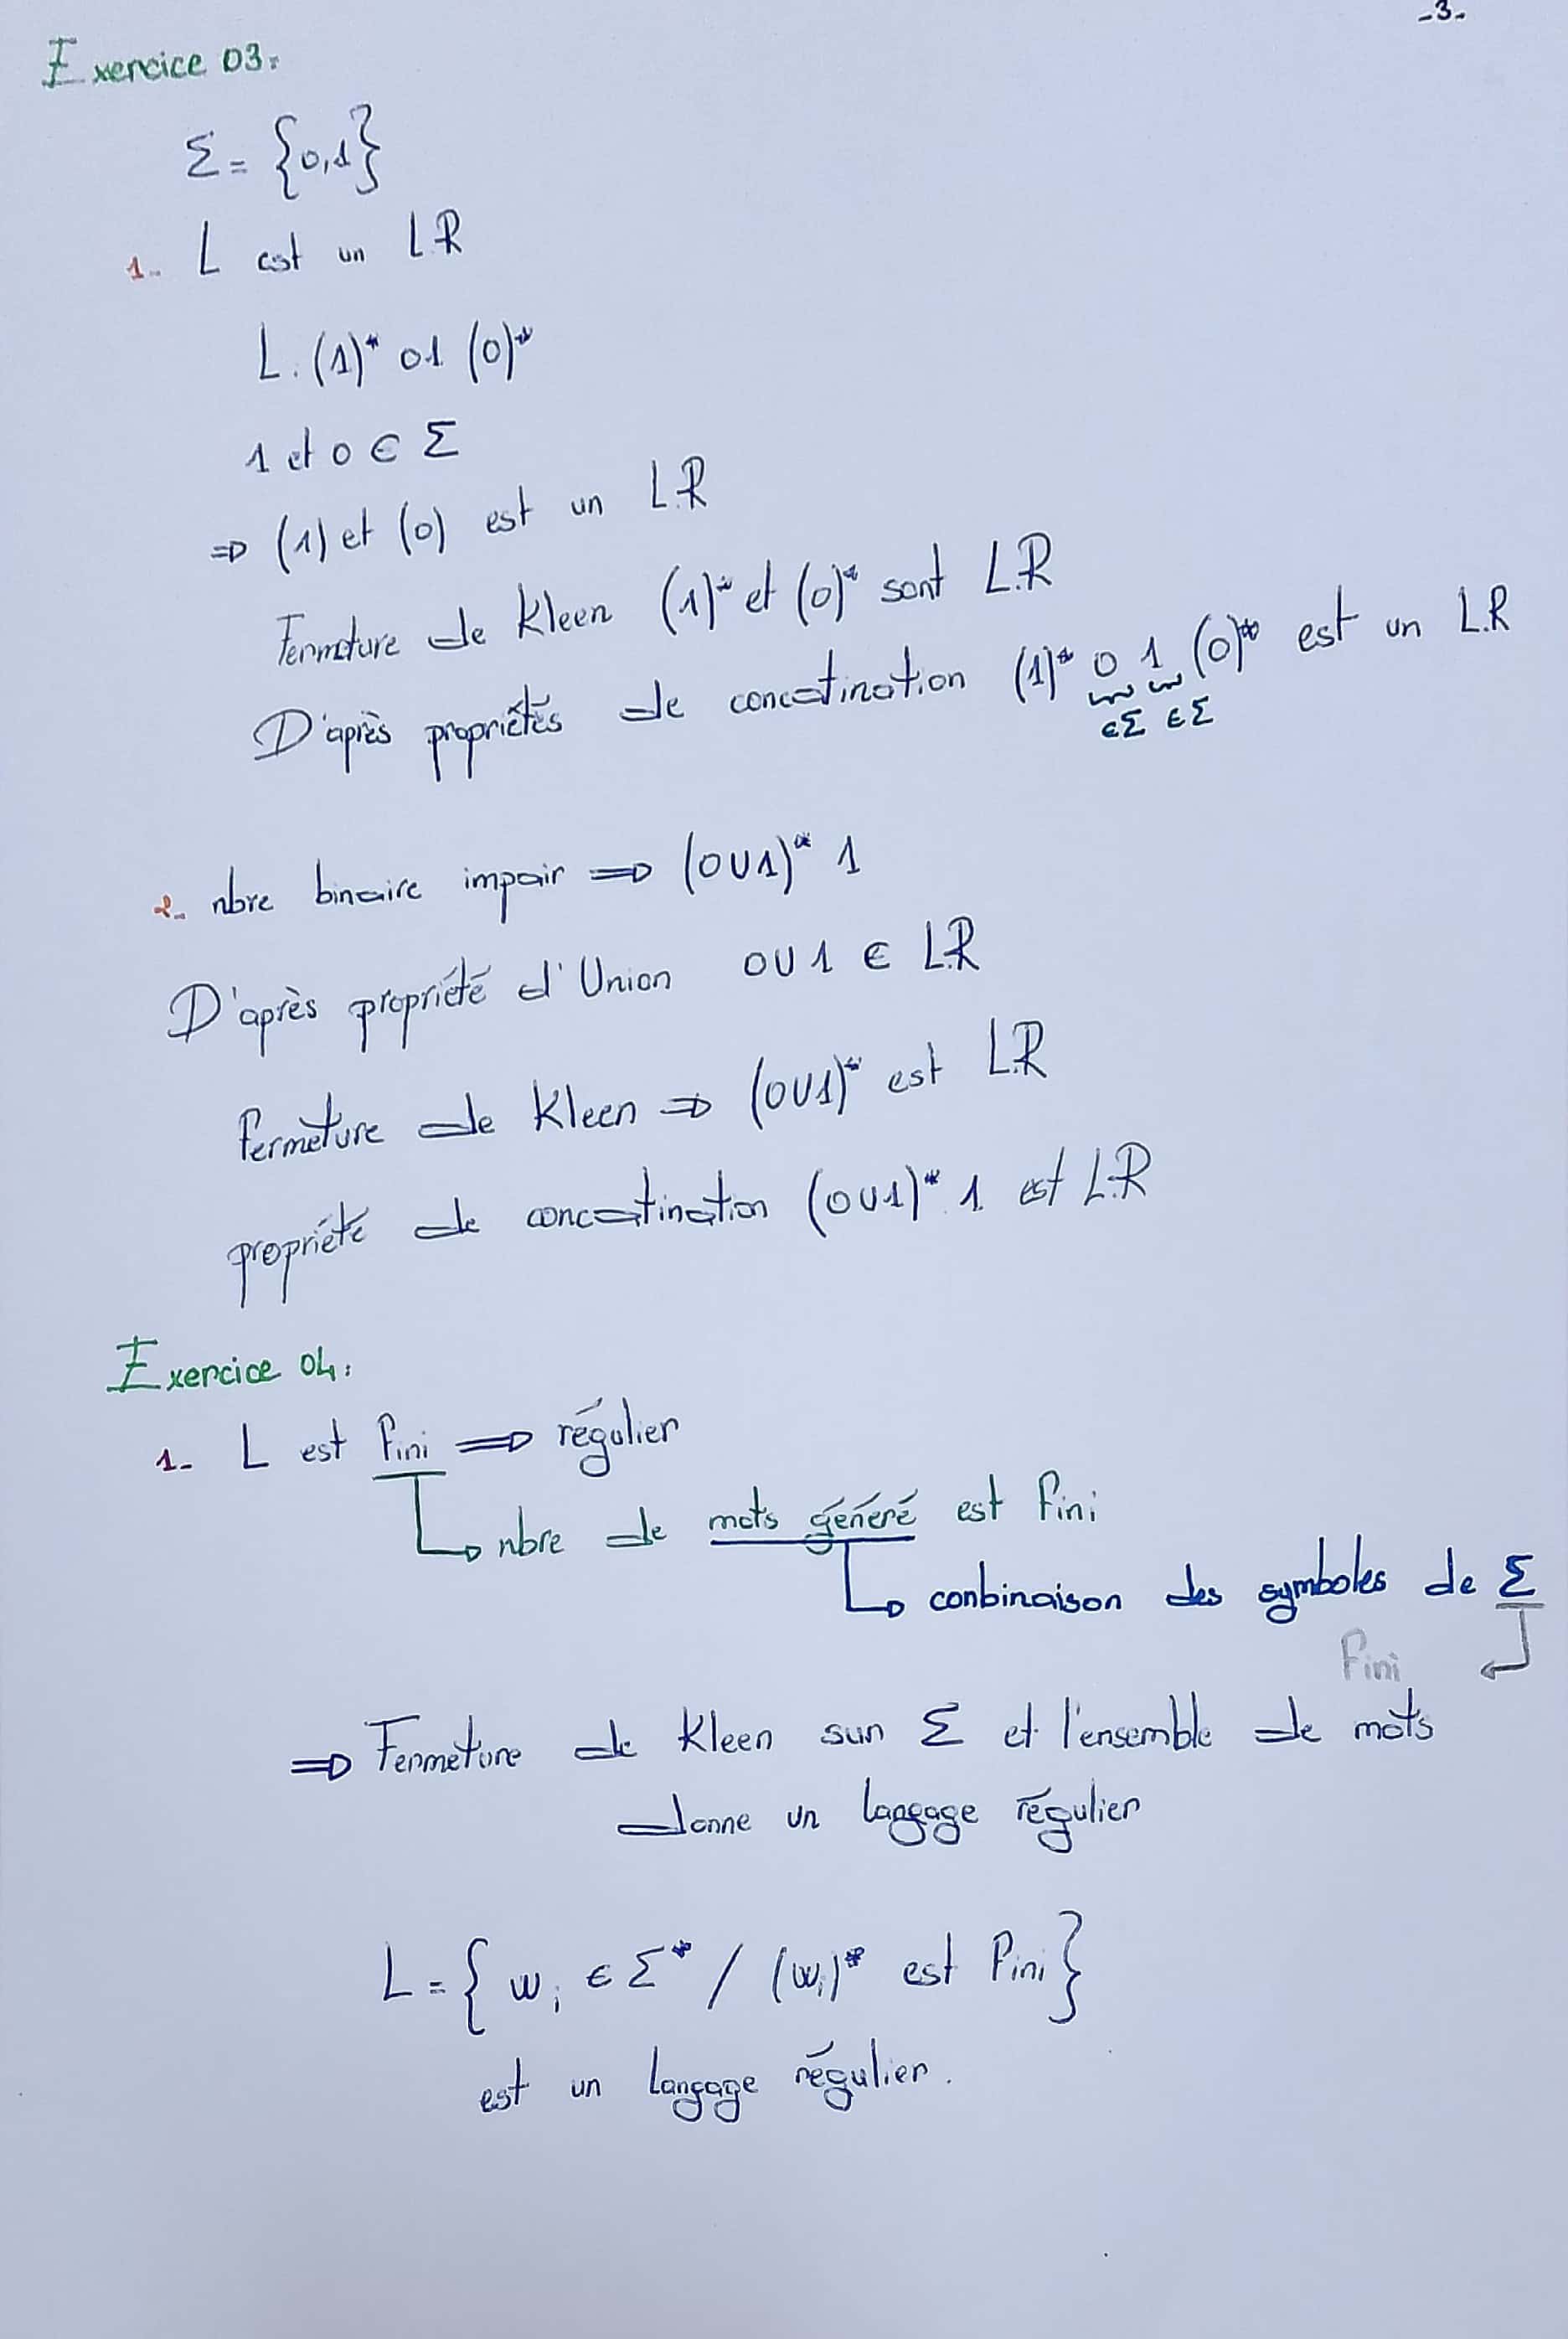 -3-
Exercice 03:
Σ = {0,1}
1- L est un L.R
L. (1)* 01 (0)*
1 et 0 ∈ Σ
⇒ (1) et (0) est un L.R
Fermeture de Kleen (1)* et (0)* sont L.R
D'après propriétés de concatination (1)* 0 1 (0)* est un L.R
∈Σ ∈Σ
2- nbre binaire impair ⇒ (0∪1)* 1
D'après propriété d'Union 0∪1 ∈ L.R
fermeture de Kleen ⇒ (0∪1)* est L.R
propriété de concatination (0∪1)* 1 est L.R
Exercice 04:
1- L est fini ⇒ régulier
↳ nbre de mots généré est fini
↳ conbinaison des symboles de Σ
fini ↵
⇒ Fermeture de Kleen sur Σ et l'ensemble de mots
donne un langage régulier
L = { wi ∈ Σ* / (wi)* est fini }
est un langage régulier.